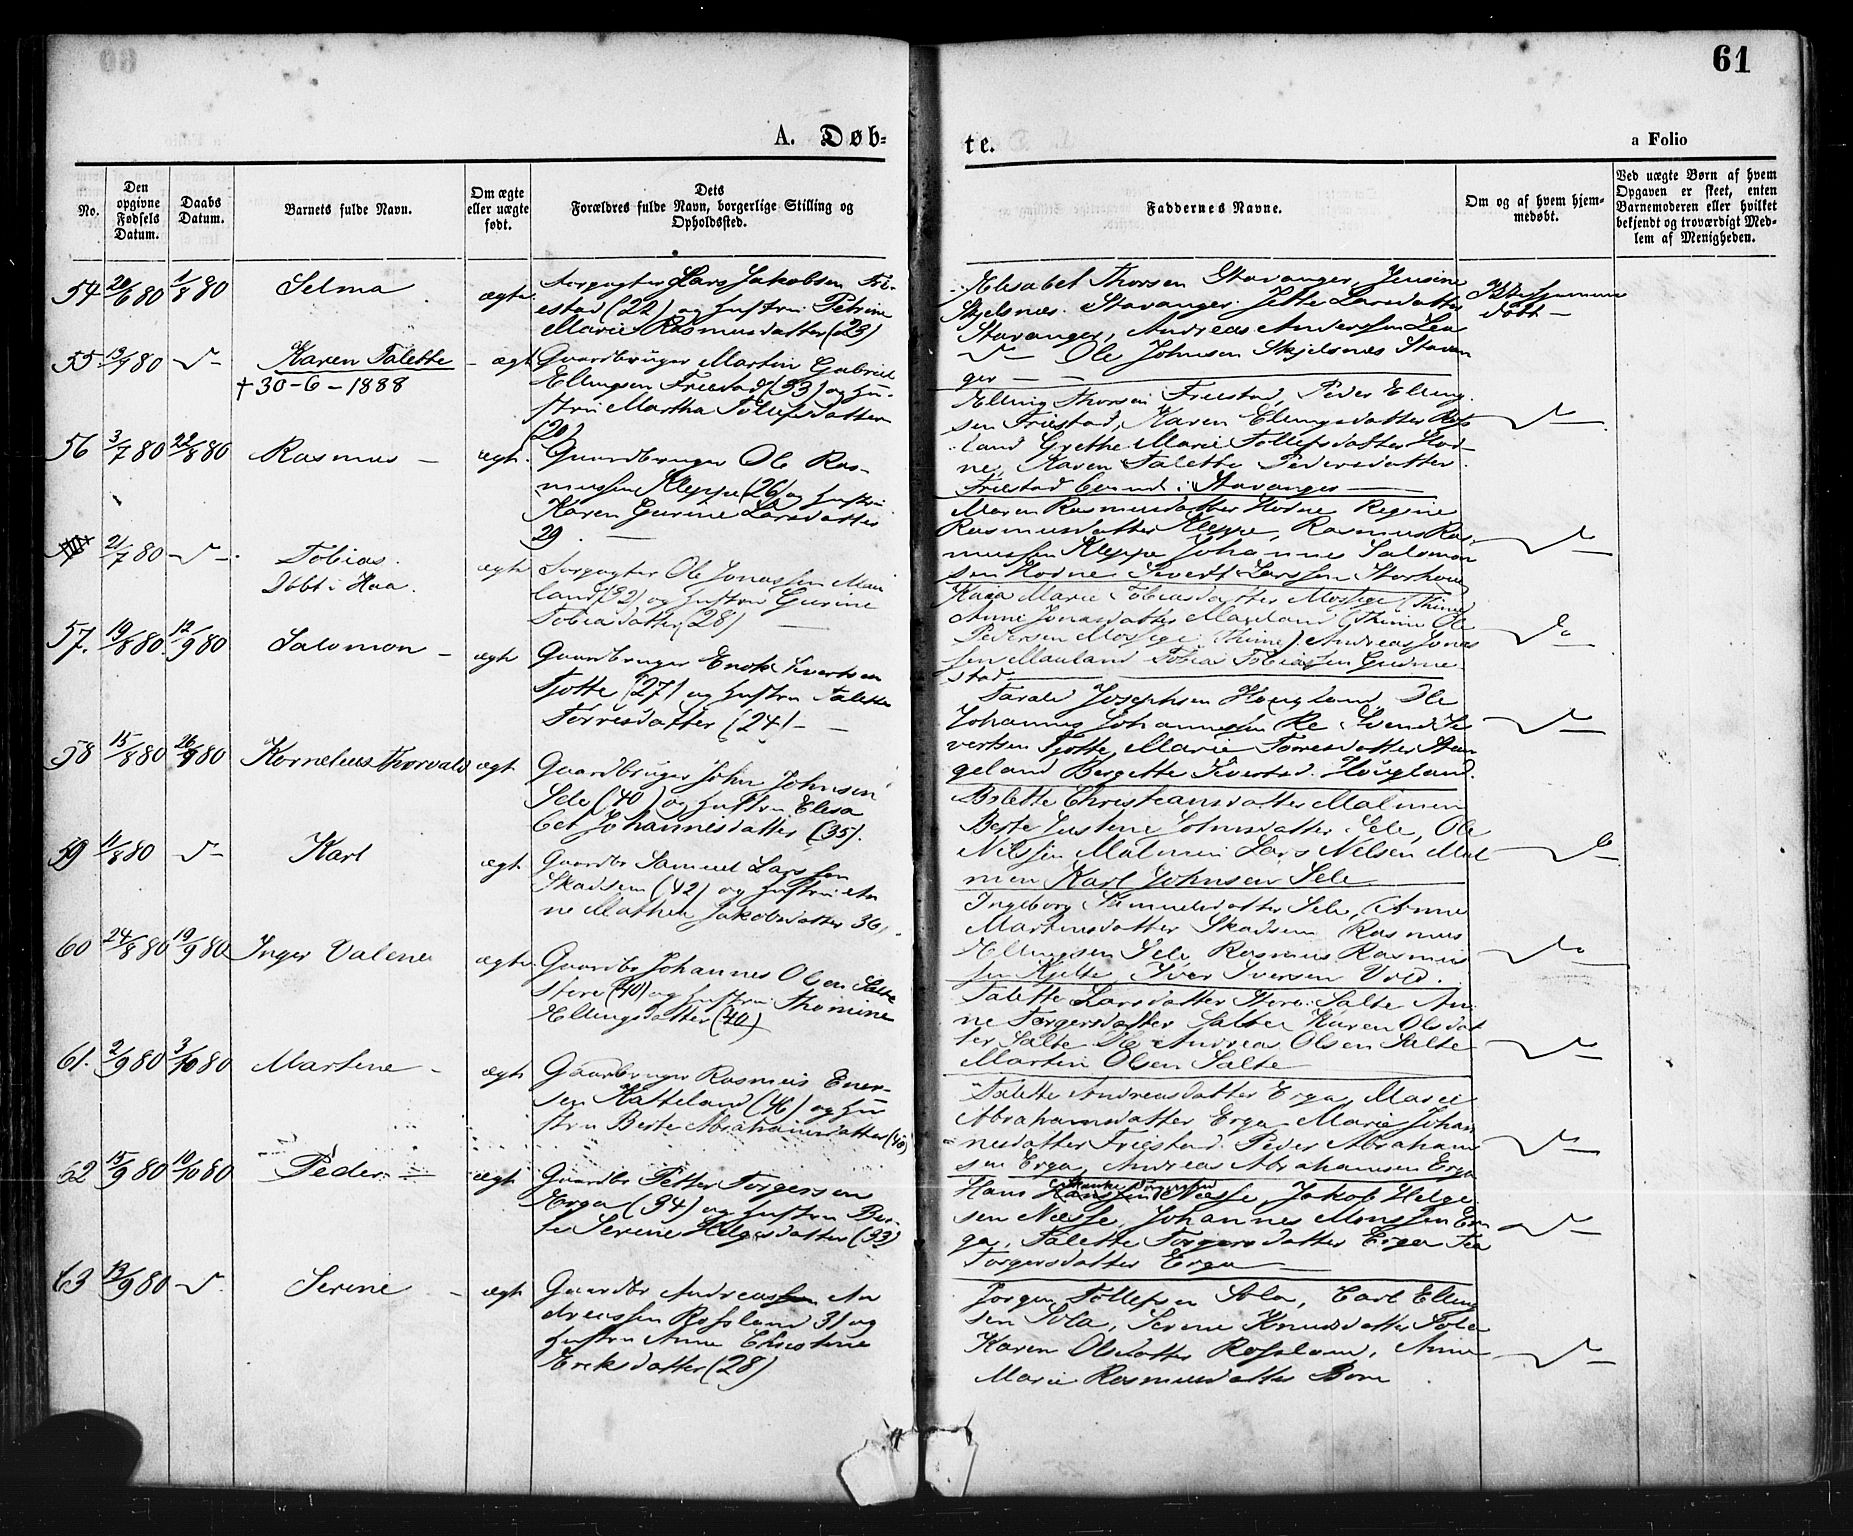 61
A. Døb-
te.
a Folio
No.
Den
opgivne
Fødsels
Datum.
Daabs
Datum.
Barnets fulde Navn.
Om ægte
eller uægte
født.
Dets
Forældres fulde Navn, borgerlige Stilling og
Opholdssted.
Faddernes Navne.
Om og af hvem hjem-
medøbt.
Ved uægte Børn af hvem
Opgaven er skeet, enten
Barnemoderen eller hvilket
bekjendt og troværdigt Med-
lem af Menigheden.
54 20/6 80 1/8 80 Selma ægte
Forpagter Lars Jakobsen Fri-
estad (22) og Hustru Petrine
Marie Rasmusdatter (23)
Elisabet Thorsen Stavanger, Jensine
Skjelsnæs. Stavanger. Jette Larsdatter
Stavanger, Andreas Anderssen Lea
Ole Johnsen Skjelsnæs Stavan
ger
Ikke hjemme
døbt
55 13/7 80 Karen Talette ægt
+ 30-6-1888
Gaardbruger Martin Gabriel
Ellingsen Friestad (33) og Hu-
stru Martha Tollefsdatter
(20)
Elling Thorsen Friestad, Peder Elling-
sen Friestad, Karen Ellingsdatter
land Grethe Marie Tollefsdatter Hod-
ne, Karen Talette Pedersdatter
Friestad boende i Stavanger
56 3/7 80 22/8 80 Rasmus ægt.
Gaardbruger Ole Ras-
mussen Kleppe (26) og Hustru
Karen Gurine Larsdatter
29.
Maren Rasmusdatter Hodne Regine
Rasmusdatter Kleppe, Rasmus Ras-
mussen Kleppe Johannes Salomon
sen Hodne Sivert Larssen Storhoug
21/7 80 Tobias. ægte
Døbt i Haa.
Forpagter Ole Jonassen Mau
land (32) og Hustru Gurine
Tobiasdatter (28)
Kaia Marie Tobiasdatter Mossige (Thime)
Anne Jonasdatter Mauland (Thime Ole
Pedersen Mossige (Thime) Andreas Jonas
sen Mauland Tobias Tobiassen Gudme-
stad
Do
57. 19/8 80 12/9 80 Salomon ægte
Gaardbruger Enok Ivertsen
Tjøtte (27) og Hustru Talette
Torresdatter (24)
Tarald Josephsen Hougland, Ole
Johannes Johannessen Re Svend I-
vertsen Tjøtte, Marie Torresdatter Stan
geland Bergette Sivertsd. Hougland.
58 15/8 80 26/9 80 Kornelius Thorvald ægt
Gaardbruger John Johnsen
Sele (40) og Hustru Elisa
bet Johannesdatter (35).
Bolette Christiansdatter Malmin
Berte Justine Johnsdatter Sele, Ole
Nilssen Malmin Lars Nilsen Mal
min Karl Johnsen Sele
59 11/8 80 Karl ægt
Gaardbr Samuel Larssen
Skadsem (42) og Hustru An
ne Mathea Jakobsdatter 36
Ingeborg Samuelsdatter Sele, Anne
Martinsdatter Skadsem Rasmus
Ellingsen Sele Rasmus Rasmus
sen Kjelte, Iver Iversen Vold.
Do
60 24/8 80 19/9 80 Inger Valene ægte
Gaardbr Johannes Olsen Salte
store (40) og Hustru Thomine
Ellingsdatter (40)
Talette Larsdatter Store-Salte An-
ne Torgersdatter Salte Karen Olsdat
ter Salte Do Andreas Olsen Salte
Martin Olsen Salte
61. 2/9 80 3/10 80 Martine ægte
Gaardbruger Rasmus Ener-
sen Hatteland (46) og Hu
stru Berte Abrahamsdatter (40)
Talette Andreasdatter Erga Marie
Abrahamsdatter Erga Marie Johan
nesdatter Friestad. Peder Abraham
sen Erga, Andreas Abrahamsen Erga
62 15/9 80 10/10 80 Peder ægt
Gaardbr Petter Torgersen
Erga (34) og Hustru Ber-
te Serine Helgesdatter (33)
Hans Hanssen Næsse, Jakob Helge-
sen Næsse, Johannes Monssen Er-
ga, Talette Torgersdatter Erga Tea
Torgersdatter Erga
63 13/9 80 Serine ægt
Gaardbr Andreas An
dreassen Rossland 31 og
Hustru Anne Christine
Eriksdatter (28)
Jørgen Tollefsen Sola, Carl Elling
sen Sola, Serine Knudsdatter Sola
Karen Olsdatter Rossland, Anne
Marie Rasmusdatter Bore